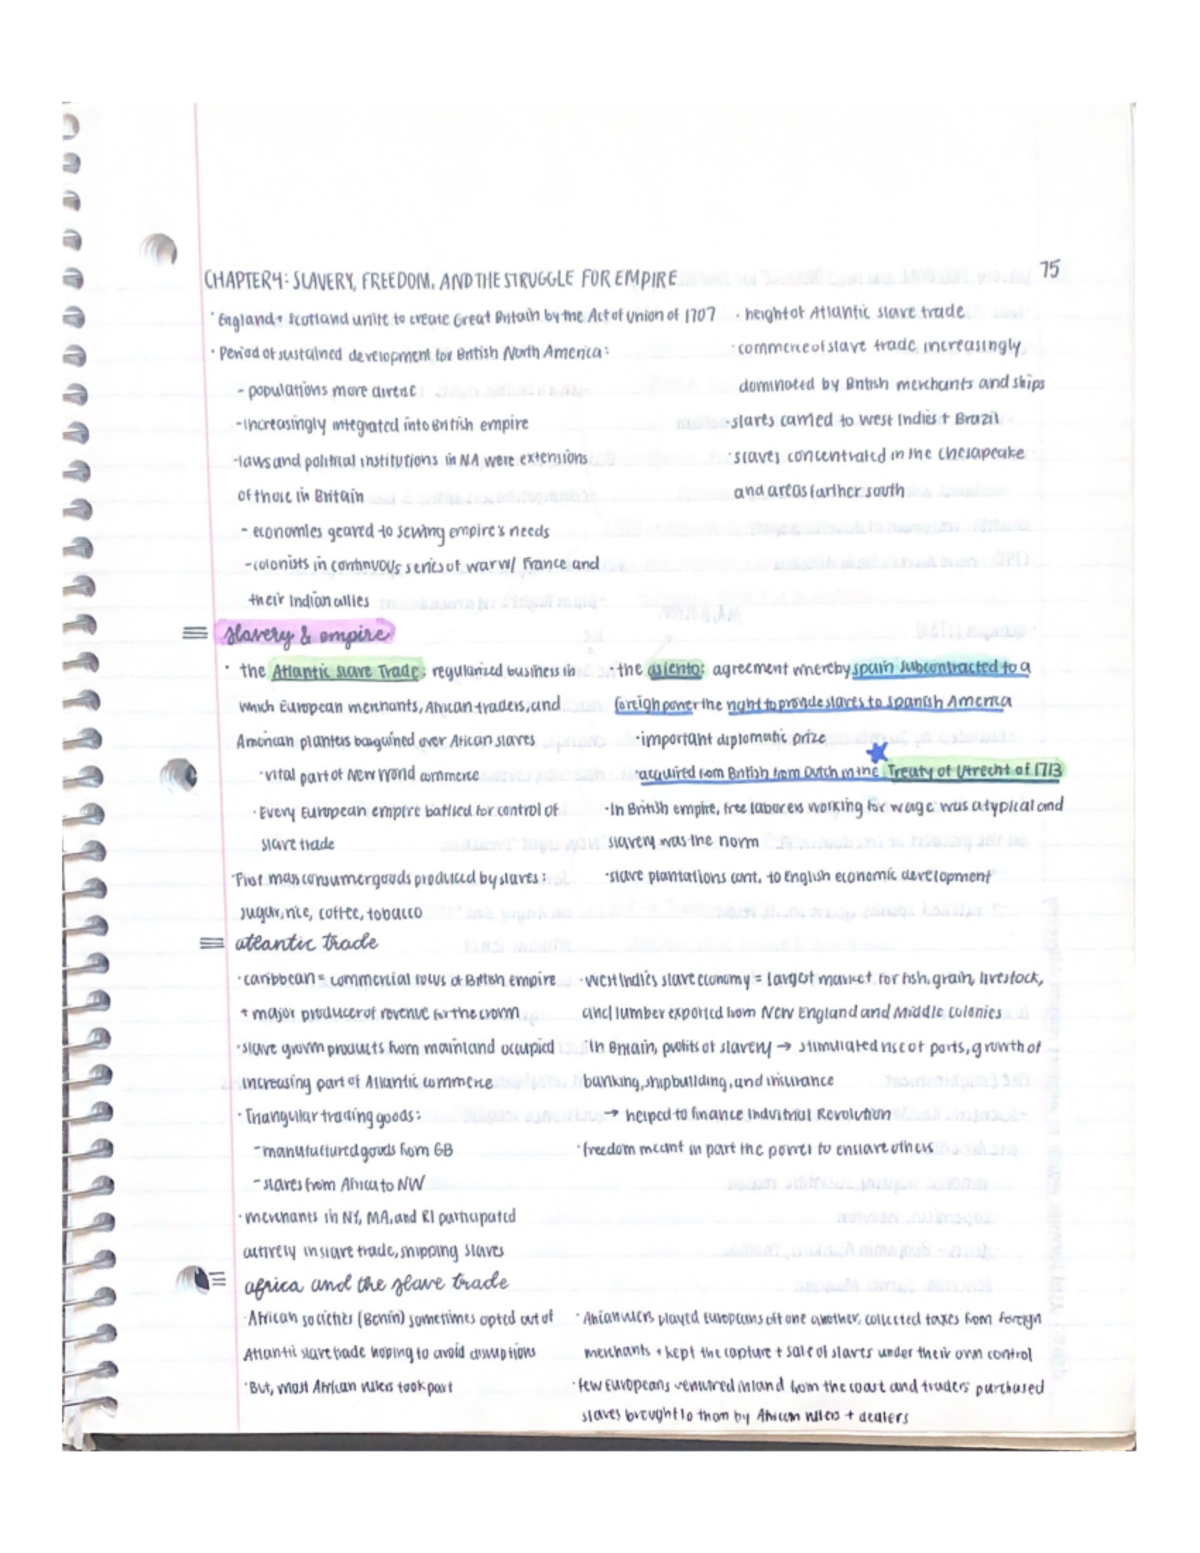 75
CHAPTER 4: SLAVERY, FREEDOM, AND THE STRUGGLE FOR EMPIRE
· England + Scotland unite to create Great Britain by the Act of Union of 1707
· Period of sustained development for British North America:
- populations more diverse
- increasingly integrated into British empire
- laws and political institutions in NA were extensions
of those in Britain
- economies geared to serving empire's needs
- colonists in continuous series of war w/ France and
their Indian allies
· height of Atlantic slave trade
· commerce of slave trade increasingly
dominated by British merchants and ships
· slaves carried to West Indies + Brazil
· slaves concentrated in the Chesapeake
and areas farther south
slavery & empire
· the Atlantic Slave Trade: regularized business in
which European merchants, African traders, and
American planters bargained over African slaves
· vital part of New World commerce
· Every European empire battled for control of
slave trade
· First mass consumer goods produced by slaves:
sugar, rice, coffee, tobacco
· the asiento: agreement whereby Spain subcontracted to a
foreign power the right to provide slaves to Spanish America
· important diplomatic prize
acquired from British from Dutch in the Treaty of Utrecht of 1713
· In British empire, free laborers working for wage was atypical and
slavery was the norm
· slave plantations cont. to English economic development
atlantic trade
· caribbean = commercial focus of British empire
+ major producer of revenue for the crown
· slave grown products from mainland occupied
increasing part of Atlantic commerce
· Triangular trading goods:
- manufactured goods from GB
- slaves from Africa to NW
· merchants in NY, MA, and RI participated
actively in slave trade, shipping slaves
· West Indies slave economy = largest market for fish, grain, livestock,
and lumber exported from New England and Middle colonies
· In Britain, profits of slavery → stimulated rise of ports, growth of
banking, shipbuilding, and insurance
→ helped to finance Industrial Revolution
· freedom meant in part the power to enslave others
africa and the slave trade
· African societies (Benin) sometimes opted out of
Atlantic slave trade hoping to avoid disruptions
· But, most African rulers took part
· African rulers played Europeans off one another, collected taxes from foreign
merchants + kept the capture + sale of slaves under their own control
· few Europeans ventured inland from the coast and traders purchased
slaves brought to them by African rulers + dealers